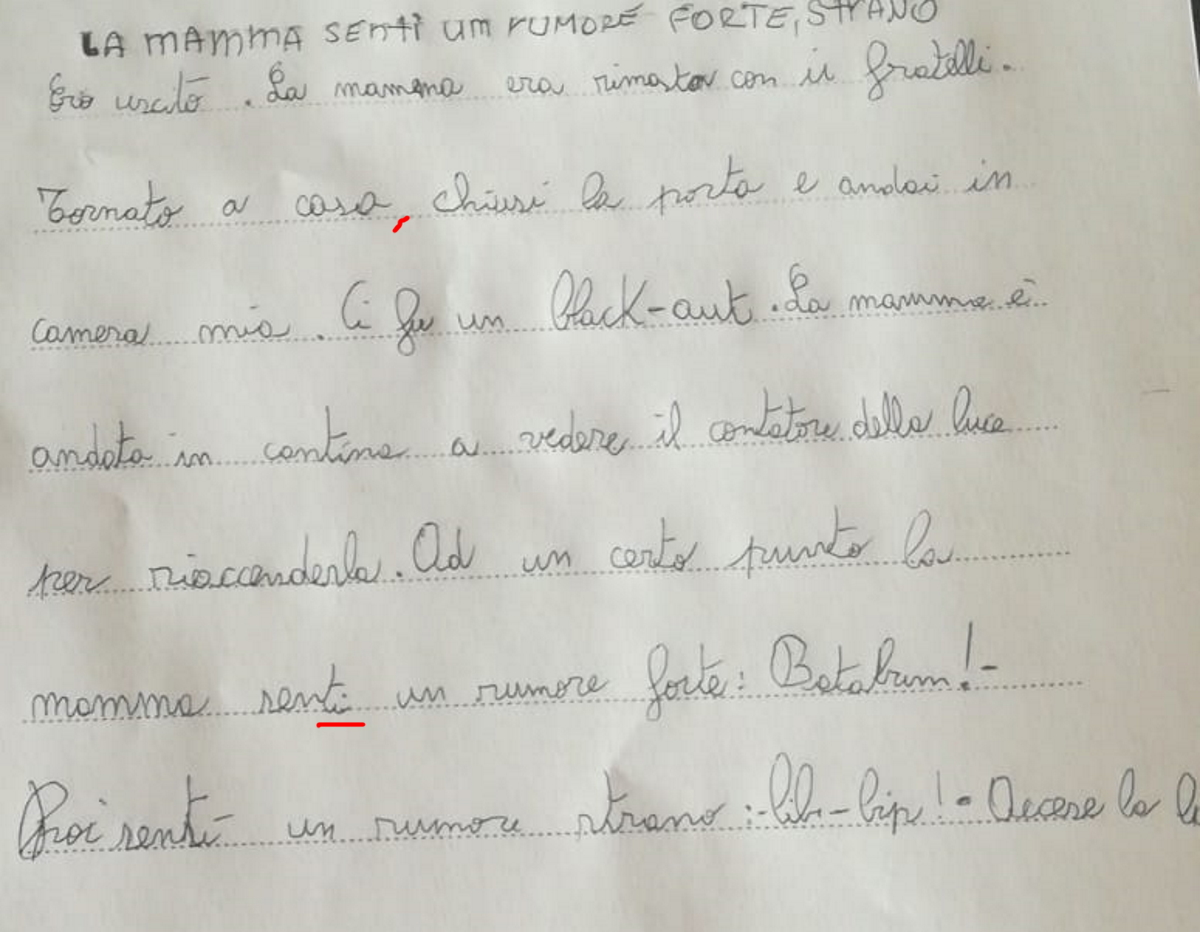 LA MAMMA SENTÌ UM RUMORE FORTE, STRANO
Ero uscito. La mamma era rimasta con ii fratelli.
Tornato a casa, chiusi la porta e andai in
camera mia. Ci fu un black-aut. La mamma è
andata in contina a vedere il contatore della luce
per riaccenderla. Ad un certo punto la
mamma senti un rumore forte: Batabum!-
Poi sentì un rumore strano:-bib-bip!- Accese la